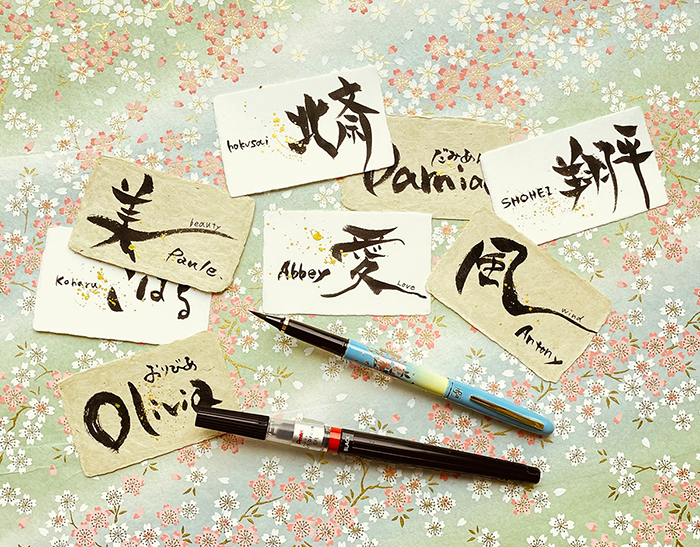 hokusai 北斎
だみあん
Damia
SHOHEI 翔平
美 beauty
Paule
Koharu はる
Abbey 愛 Love
風 wind
Antony
おりびあ
Olivia